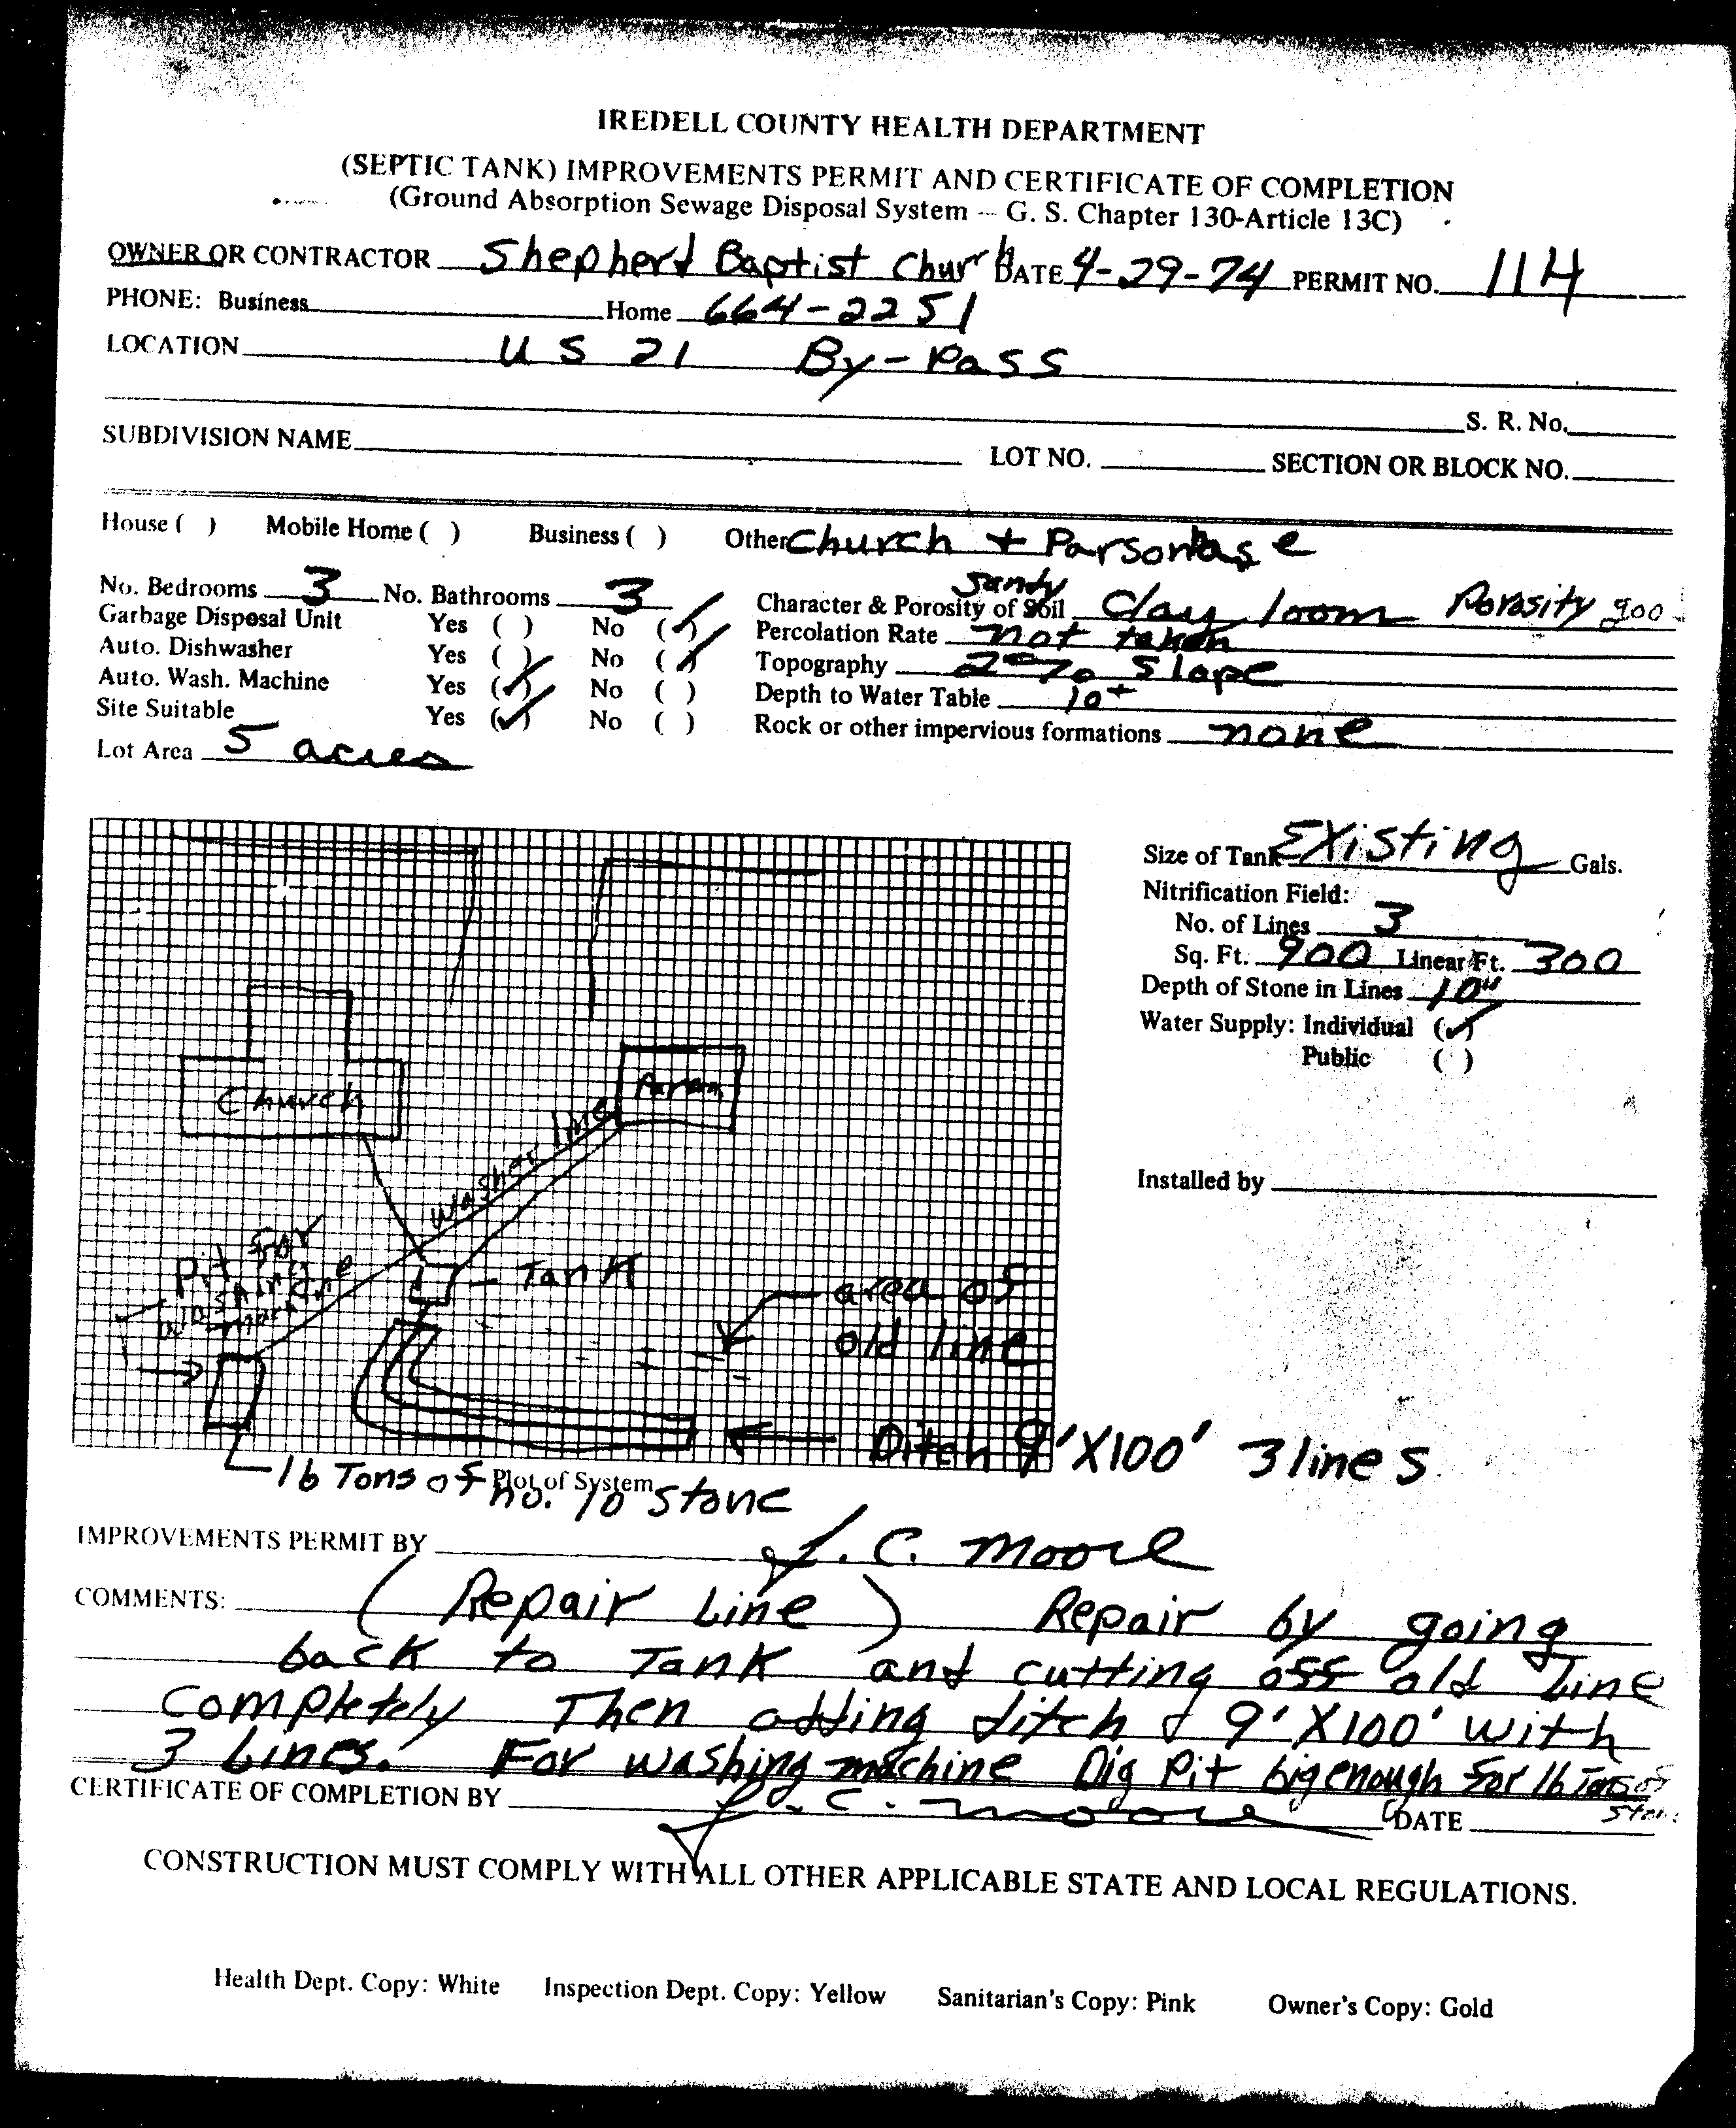 IREDELL COUNTY HEALTH DEPARTMENT
(SEPTIC TANK) IMPROVEMENTS PERMIT AND CERTIFICATE OF COMPLETION
(Ground Absorption Sewage Disposal System -- G. S. Chapter 130-Article 13C)
OWNER OR CONTRACTOR Shepherd Baptist Church DATE 4-29-74 PERMIT NO. 114
PHONE: Business Home 664-2251
LOCATION US 21 By-Pass
S. R. No.
SUBDIVISION NAME LOT NO. SECTION OR BLOCK NO.
House ( ) Mobile Home ( ) Business ( ) Other Church + Parsonage
No. Bedrooms 3 No. Bathrooms 3 Character & Porosity of Soil Sandy Clay loom Porosity goo
Garbage Disposal Unit Yes ( ) No (✓) Percolation Rate not taken
Auto. Dishwasher Yes ( ) No (✓) Topography 2% Slope
Auto. Wash. Machine Yes (✓) No ( ) Depth to Water Table 10+
Site Suitable Yes (✓) No ( ) Rock or other impervious formations none
Lot Area 5 acres
Size of Tank Existing Gals.
Nitrification Field:
No. of Lines 3
Sq. Ft. 900 Linear Ft. 300
Depth of Stone in Lines 10"
Water Supply: Individual (✓)
Public ( )
Installed by
Church
washer line
Pit for
washing
machine
Tank
area of
old line
Ditch 9'X100' 3 lines
16 Tons of no. 10 stone
Plot of System
IMPROVEMENTS PERMIT BY J. C. Moore
COMMENTS: (Repair Line) Repair by going
back to Tank and cutting off old Line
completely Then adding ditch 9'X100' with
3 Lines. For washing machine Dig Pit big enough for 16 Tons of
stone
CERTIFICATE OF COMPLETION BY J. C. Moore DATE
CONSTRUCTION MUST COMPLY WITH ALL OTHER APPLICABLE STATE AND LOCAL REGULATIONS.
Health Dept. Copy: White Inspection Dept. Copy: Yellow Sanitarian's Copy: Pink Owner's Copy: Gold